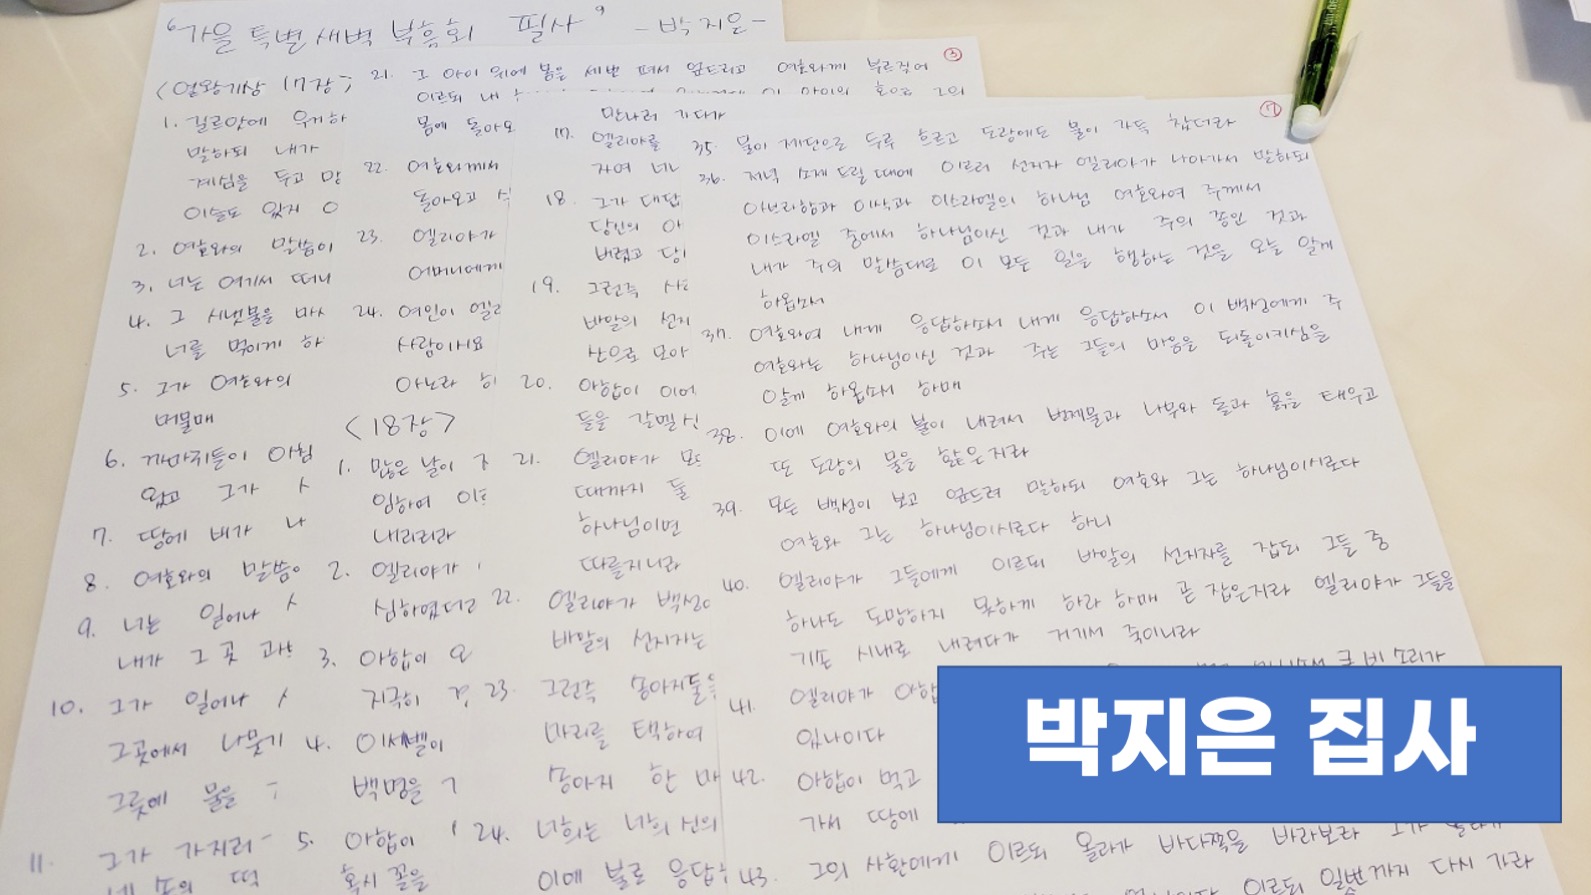 "가을 특별새벽 부흥회 필사" -박지은-
<열왕기상 17장>
1. 길르앗에 우거하
말하되 내가
계심을 두고 맹
이슬도 있지 아
2. 여호와의 말씀이
3. 너는 여기서 떠나
4. 그 시냇물을 마시
너를 먹이게 하
5. 그가 여호와의
머물매
6. 까마귀들이 아침
왔고 그가 시
7. 땅에 비가 나
8. 여호와의 말씀이
9. 너는 일어나 시
내가 그 곳 과부
10. 그가 일어나 사
그곳에서 나뭇가
그릇에 물을
11. 그가 가지러
네 손의 떡
③
21. 그 아이 위에 몸을 세번 펴서 엎드리고 여호와께 부르짖어
이르되 내
몸에 돌아오
22. 여호와께서
돌아오고 살
23. 엘리야가
어머니에게
24. 여인이 엘리
사람이시요
아노라 하
<18장>
1. 많은 날이 지
임하여 이르
내리리라
2. 엘리야가
심하였더라
3. 아합이 오
지극히 경
4. 이세벨이
백명을 가
5. 아합이
혹시 꼴을
만나러 가다가
17. 엘리야를
자여 너냐
18. 그가 대답
당신의 아
버렸고 당신
19. 그런즉 사람
바알의 선지
산으로 모아
20. 아합이 이에
들을 갈멜산
21. 엘리야가 모든
때까지 둘
하나님이면
따를지니라
22. 엘리야가 백성에
바알의 선지자는
23. 그런즉 송아지 둘을
마리를 택하여
송아지 한 마
24. 너희는 너희 신의
이에 불로 응답하
⑦
35. 물이 제단으로 두루 흐르고 도랑에도 물이 가득 찼더라
36. 저녁 소제 드릴 때에 이르러 선지자 엘리야가 나아가서 말하되
아브라함과 이삭과 이스라엘의 하나님 여호와여 주께서
이스라엘 중에서 하나님이신 것과 내가 주의 종인 것과
내가 주의 말씀대로 이 모든 일을 행하는 것을 오늘 알게
하옵소서
37. 여호와여 내게 응답하소서 내게 응답하소서 이 백성에게 주
여호와는 하나님이신 것과 주는 그들의 마음을 되돌이키심을
알게 하옵소서 하매
38. 이에 여호와의 불이 내려서 번제물과 나무와 돌과 흙을 태우고
또 도랑의 물을 핥은지라
39. 모든 백성이 보고 엎드려 말하되 여호와 그는 하나님이시로다
여호와 그는 하나님이시로다 하니
40. 엘리야가 그들에게 이르되 바알의 선지자를 잡되 그들 중
하나도 도망하지 못하게 하라 하매 곧 잡은지라 엘리야가 그들을
기손 시내로 내려다가 거기서 죽이니라
41. 엘리야가 아합 큰 비 소리가
있나이다
42. 아합이 먹고
가서 땅에
43. 그의 사환에게 이르되 올라가 바다쪽을 바라보라 그가 올라가
이르되 일곱번까지 다시 가라
박지은 집사